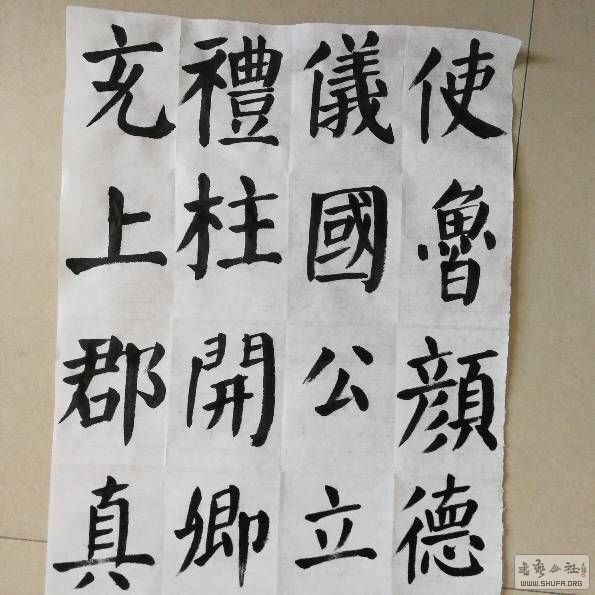 充禮儀使
上柱國魯
郡開公顏
真卿立德
WWW.SHUFA.ORG